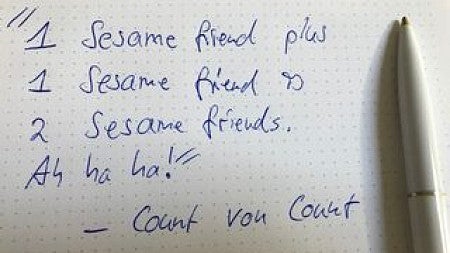 "1 Sesame friend plus
1 Sesame friend is
2 Sesame friends.
Ah ha ha!"
– Count von Count